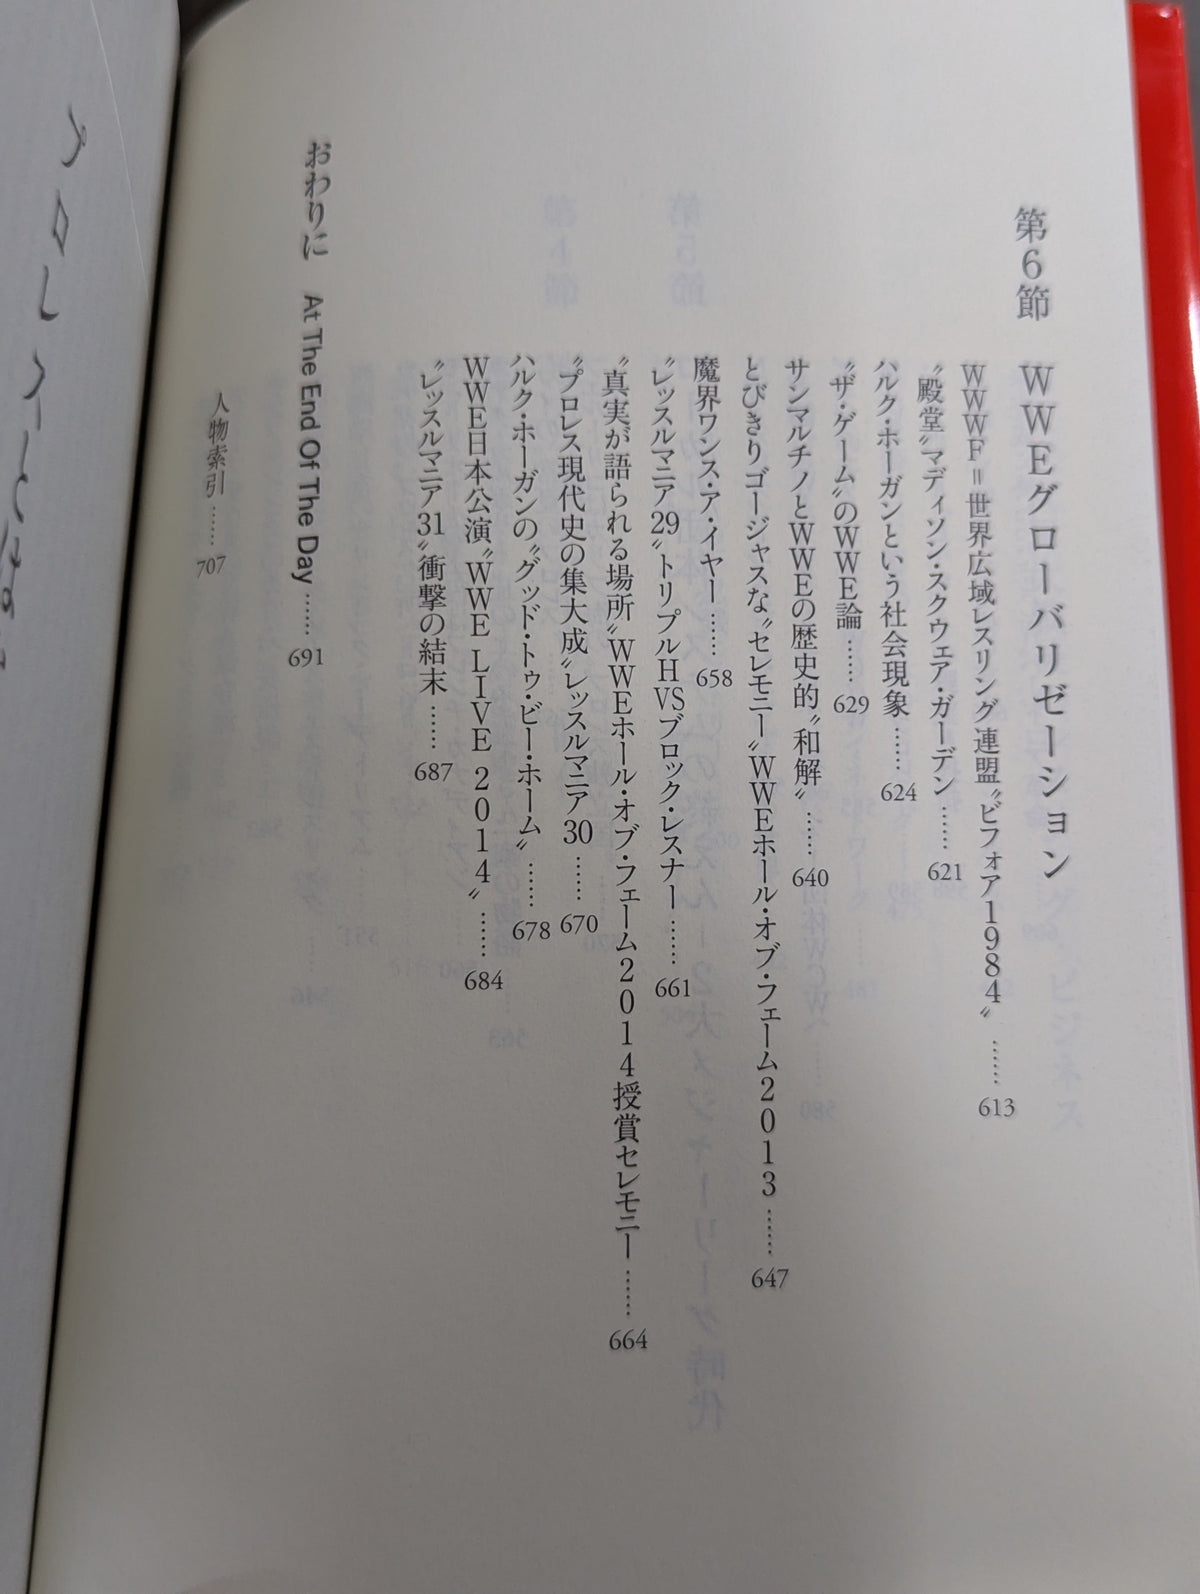 第6節　WWEグローバリゼーション
WWWF＝世界広域レスリング連盟〝ビフォア1984〟……613
〝殿堂〟マディソン・スクウェア・ガーデン……621
ハルク・ホーガンという社会現象……624
〝ザ・ゲーム〟のWWE論……629
サンマルチノとWWEの歴史的〝和解〟……640
とびきりゴージャスな〝セレモニー〟WWEホール・オブ・フェーム2013……647
魔界ワンス・ア・イヤー……658
〝レッスルマニア29〟トリプルH VSブロック・レスナー……661
〝真実が語られる場所〟WWEホール・オブ・フェーム2014授賞セレモニー……664
〝プロレス現代史の集大成〟レッスルマニア30……670
ハルク・ホーガンの〝グッド・トゥ・ビー・ホーム〟……678
WWE日本公演〝WWE LIVE 2014〟……684
〝レッスルマニア31〟衝撃の結末……687
おわりに　At The End Of The Day……691
人物索引……707
プロレスとは